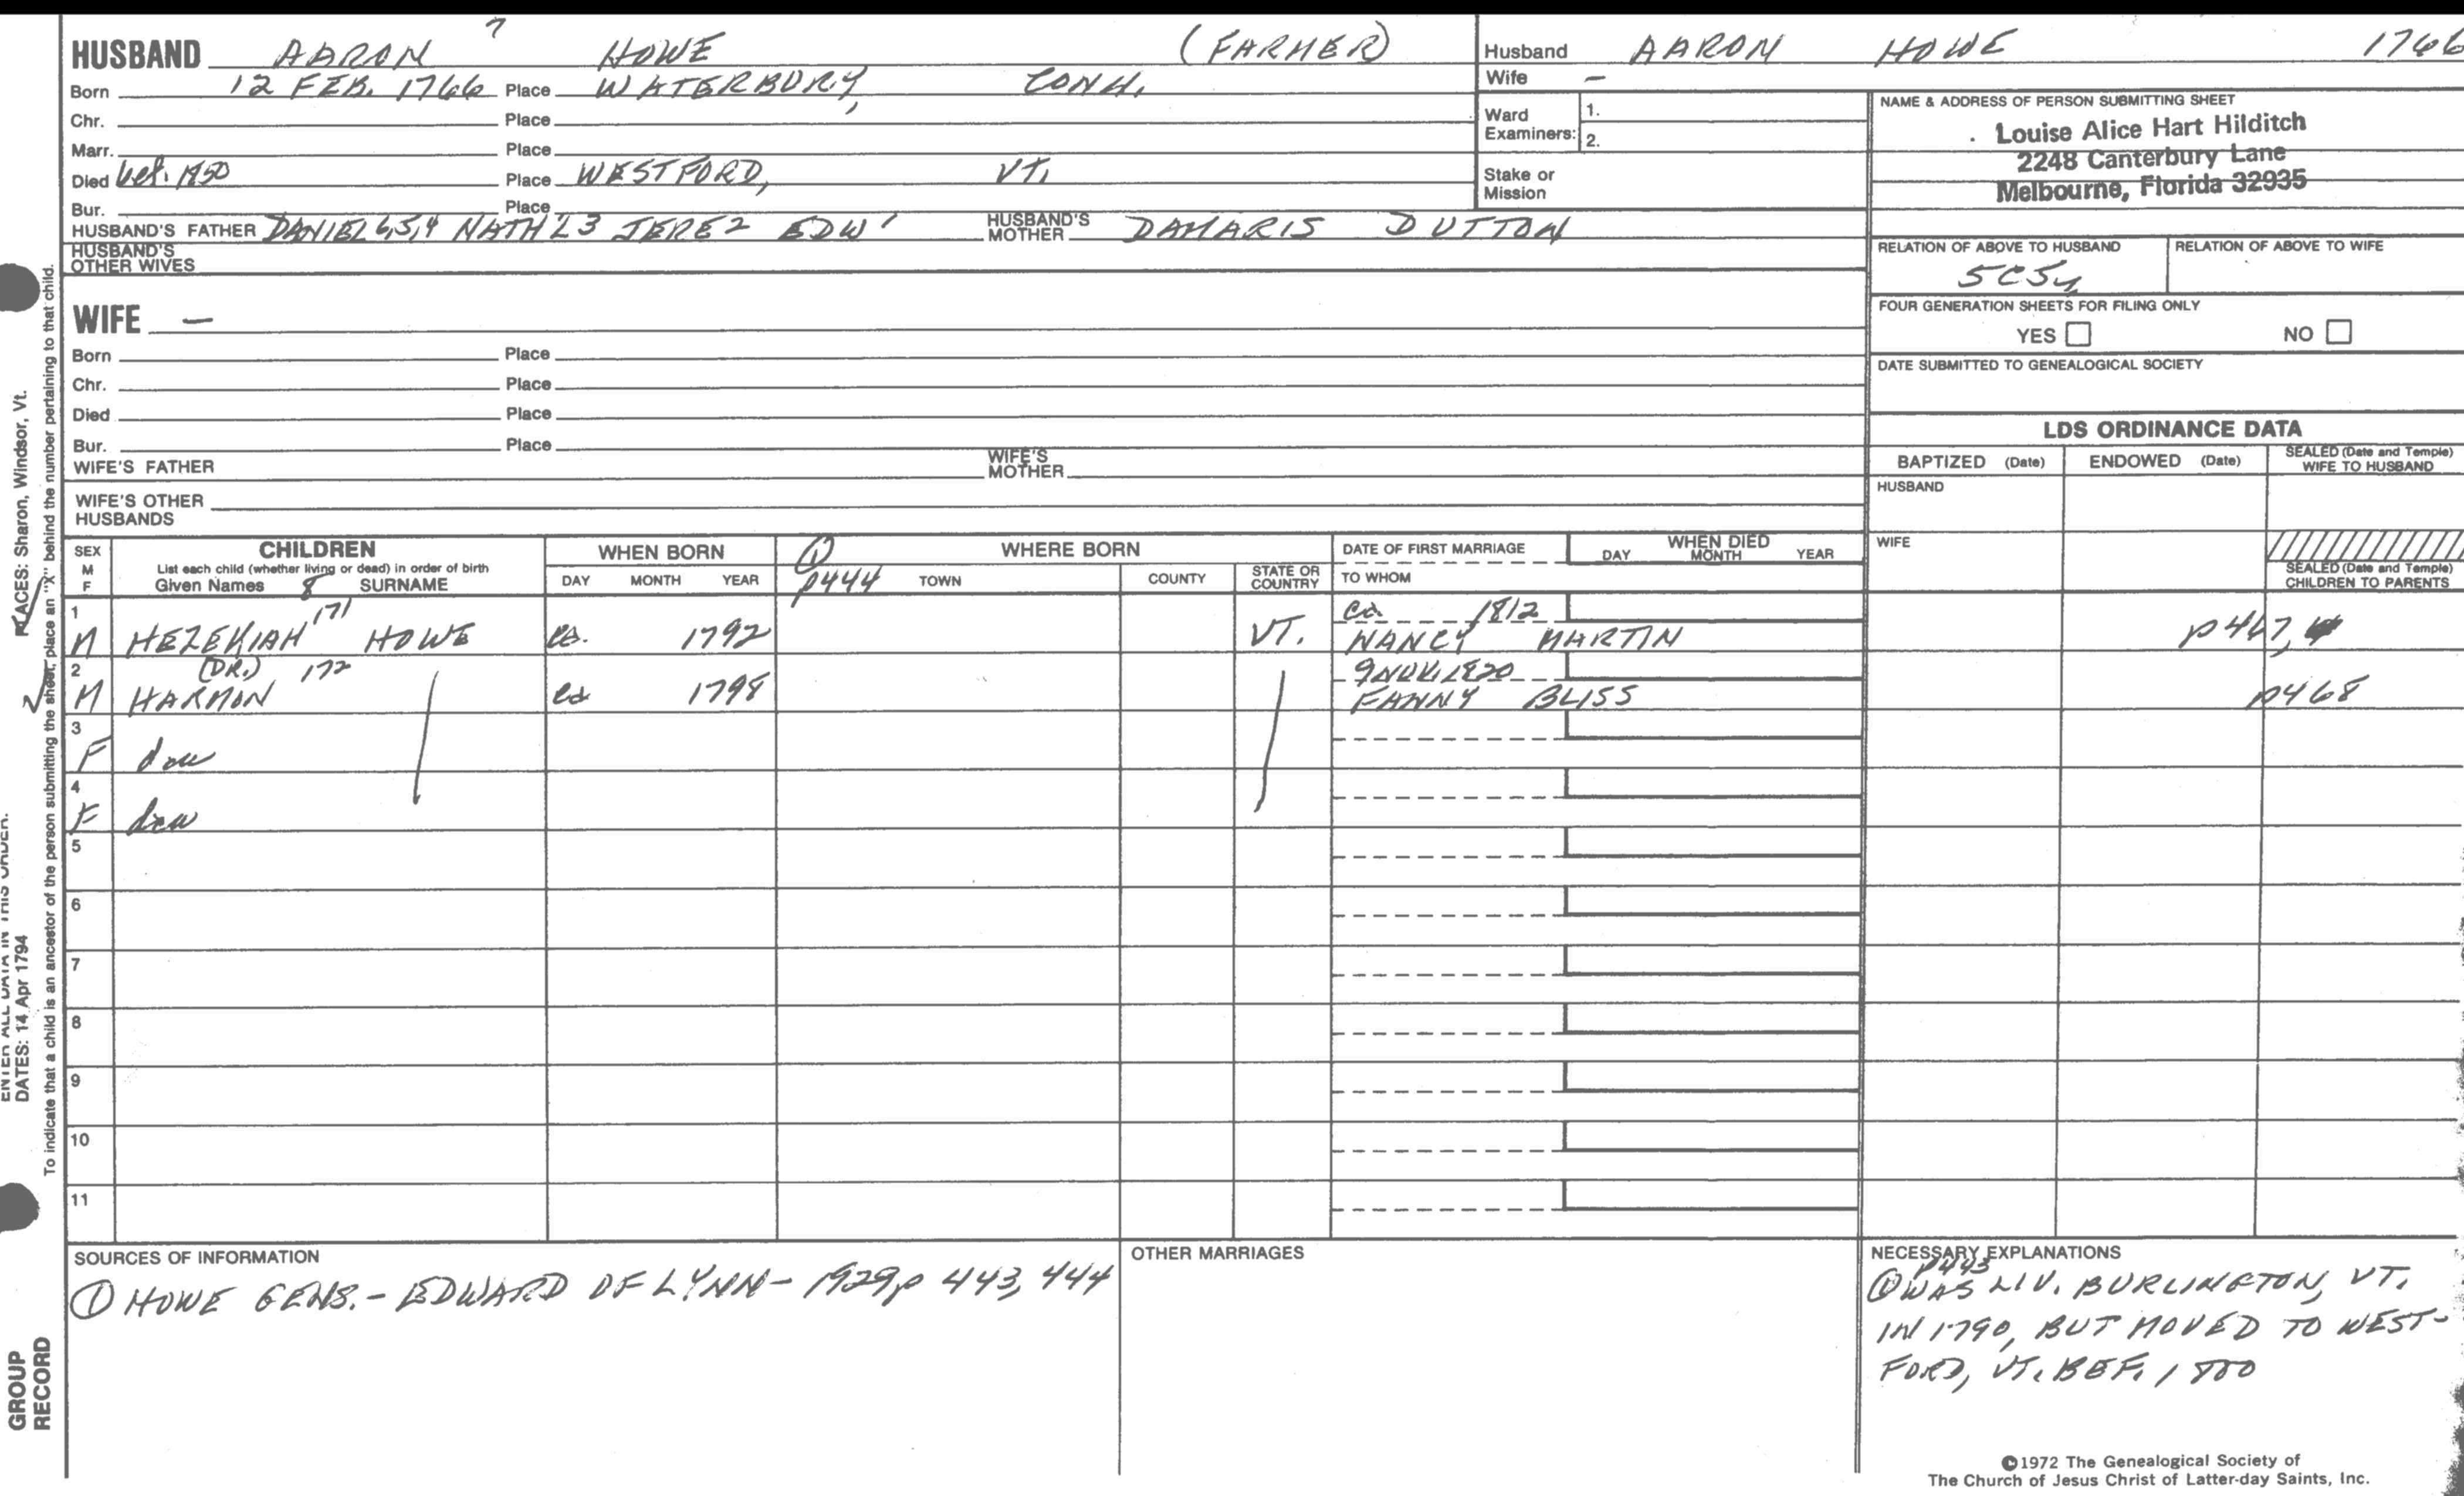 HUSBAND AARON 7 HOWE (FARMER)
Born 12 FEB. 1766 Place WATERBURY, CONN.
Chr. Place
Marr. Place
Died bef. 1850 Place WESTFORD, VT.
Bur. Place
HUSBAND'S FATHER DANIEL 6,5,4 NATH'L 3 JERE 2 EDW 1 HUSBAND'S MOTHER DAMARIS DUTTON
HUSBAND'S OTHER WIVES
WIFE –
Born Place
Chr. Place
Died Place
Bur. Place
WIFE'S FATHER WIFE'S MOTHER
WIFE'S OTHER HUSBANDS
Husband AARON HOWE 1766
Wife –
Ward Examiners: 1.
2.
Stake or Mission
NAME & ADDRESS OF PERSON SUBMITTING SHEET
Louise Alice Hart Hilditch
2248 Canterbury Lane
Melbourne, Florida 32935
RELATION OF ABOVE TO HUSBAND RELATION OF ABOVE TO WIFE
5C5
FOUR GENERATION SHEETS FOR FILING ONLY
YES NO
DATE SUBMITTED TO GENEALOGICAL SOCIETY
LDS ORDINANCE DATA
BAPTIZED (Date) ENDOWED (Date) SEALED (Date and Temple) WIFE TO HUSBAND
HUSBAND
WIFE
SEALED (Date and Temple) CHILDREN TO PARENTS
SEX M F CHILDREN WHEN BORN ① WHERE BORN DATE OF FIRST MARRIAGE WHEN DIED
List each child (whether living or dead) in order of birth
Given Names 8 SURNAME DAY MONTH YEAR p444 TOWN COUNTY STATE OR COUNTRY TO WHOM DAY MONTH YEAR
1 171 ca. 1812
M HEZEKIAH HOWE ca. 1792 VT. NANCY MARTIN p467,
2 (DR.) 172 9 NOV. 1820
M HARMON ca 1798 FANNY BLISS p468
3
F dau
4
F dau
5
6
7
8
9
10
11
SOURCES OF INFORMATION
① HOWE GENS. - EDWARD OF LYNN - 1929, p 443, 444
OTHER MARRIAGES
NECESSARY EXPLANATIONS
p443
① WAS LIV. BURLINGTON, VT.
IN 1790, BUT MOVED TO WEST-
FORD, VT. BEF. 1800
©1972 The Genealogical Society of
The Church of Jesus Christ of Latter-day Saints, Inc.
PLACES: Sharon, Windsor, Vt.
ENTER ALL DATA IN THIS ORDER:
DATES: 14 Apr 1794
To indicate that a child is an ancestor of the person submitting the sheet, place an "X" behind the number pertaining to that child.
GROUP
RECORD